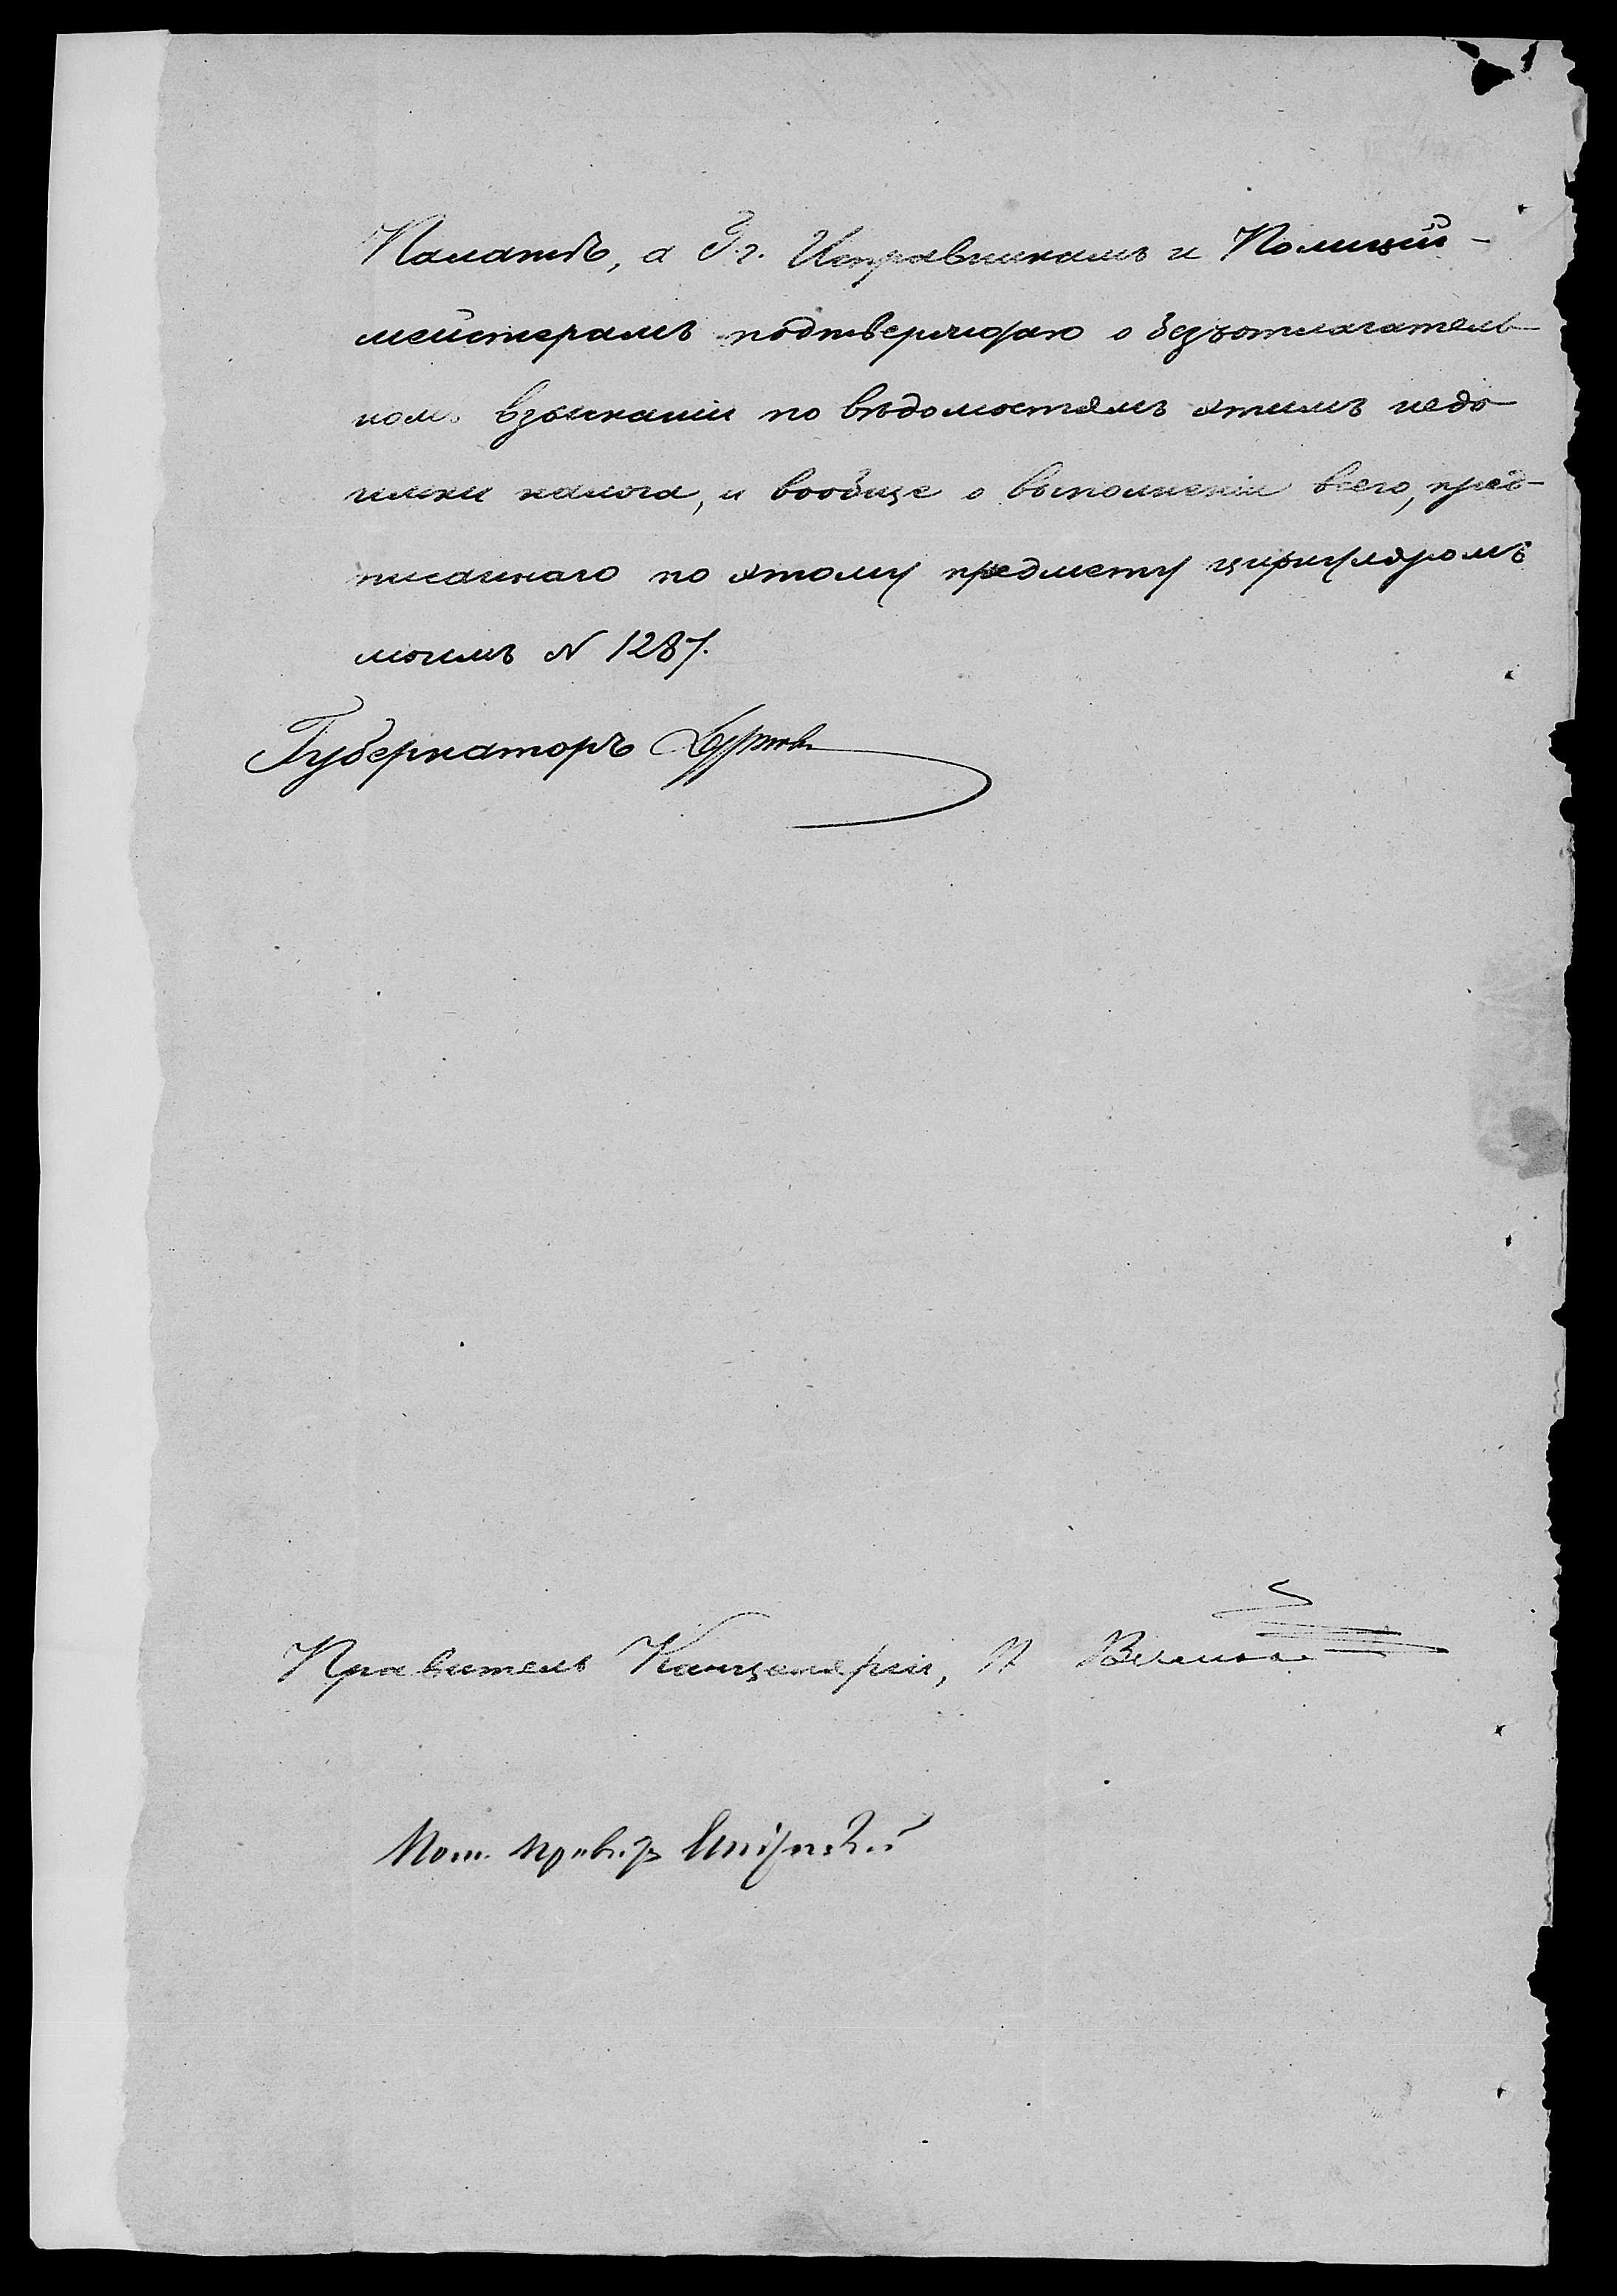 Палатѣ, а Г.г. Исправникамъ и Полицій-
мейстерамъ подтверждаю о безъотлагатель-
номъ взысканіи по вѣдомостямъ этимъ недо-
имки налога, и вообще о выполненіи всего, пред-
писаннаго по этому предмету циркуляромъ
моимъ N 1287.
Губернаторъ
Правитель Канцеляріи,